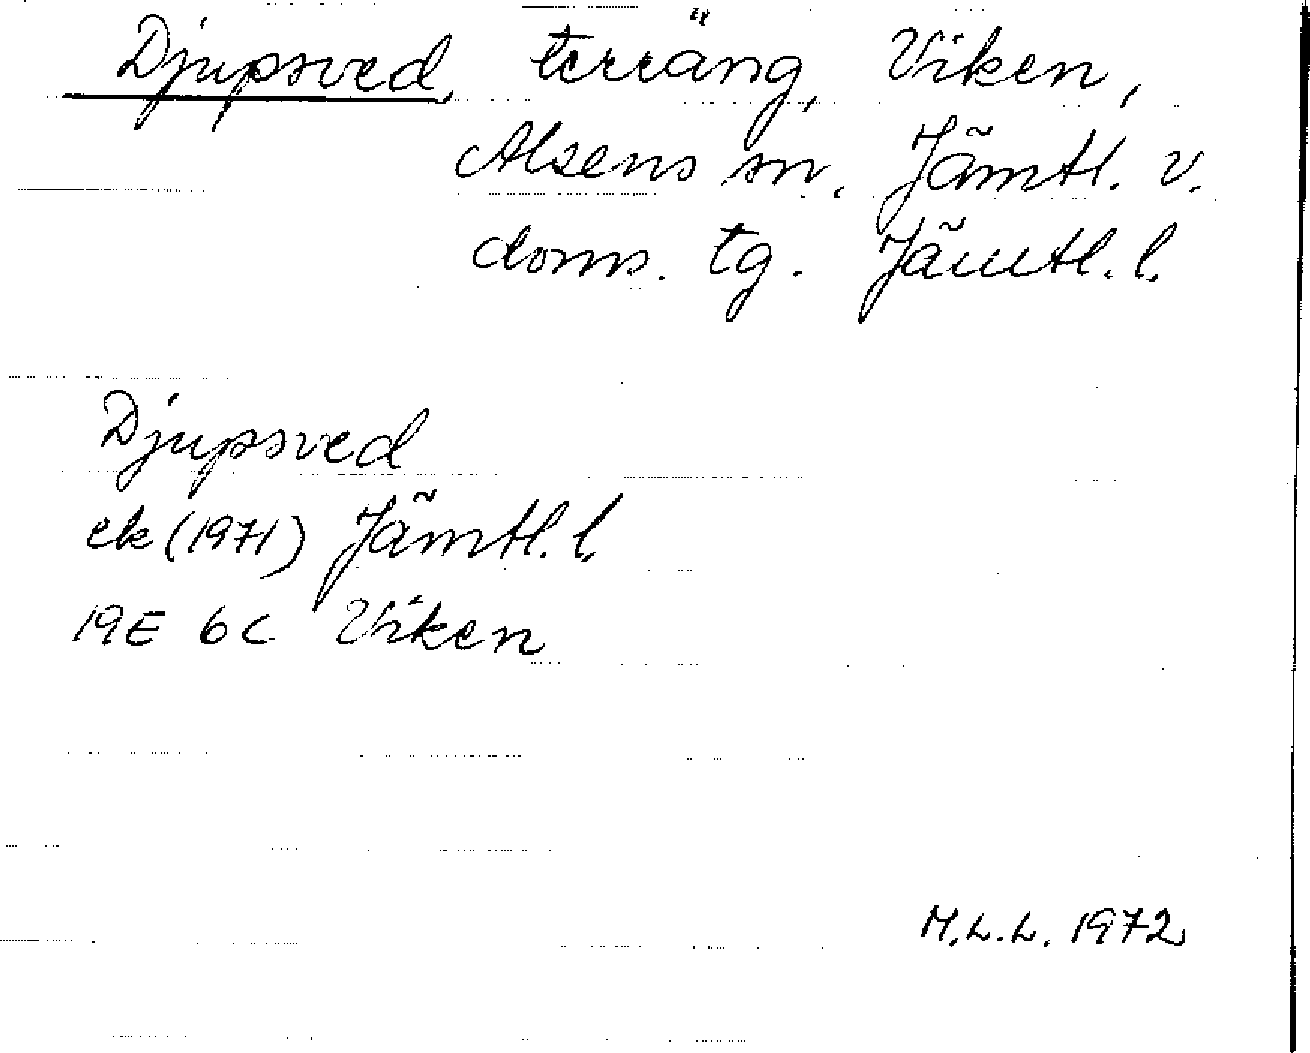 Djupsved, terräng, Viken,
Alsens sn. Jämtl. v.
doms. tg. Jämtl. l.
Djupsved
ek (1971) Jämtl. l.
19E 6c Viken
M.L.L. 1972